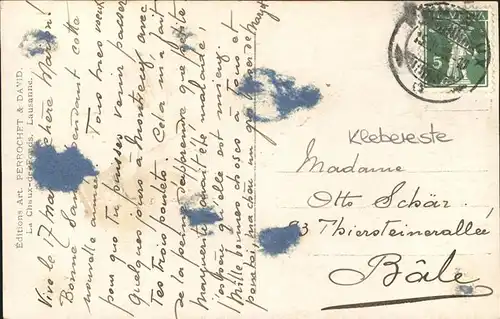 Éditions Art. PERROCHET & DAVID.
La Chaux-de-Fonds, Lausanne.
Vive le 17 mai chère Maman!
Bonne Santé pendant cette
nouvelle année. Tous tres voeux
pour que tu puisses venir passer
quelques jours à Montreux avec
Tes trois petits. Cela m'a fait
de la peine d'apprendre que
Marguerite avait été malade,
j'espère qu'elle est mieux.
Mille bonnes choses à tous
HELVETIA
5
Klebereste
Madame
Otto Schär.
93 Thiersteinerallee
Bâle